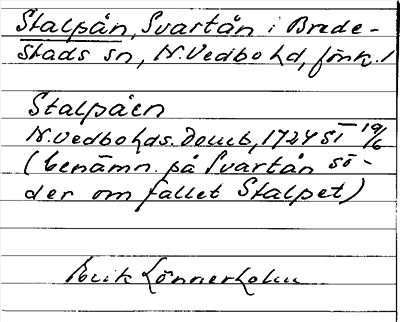 Stalpån, Svartån i Brede-
stads sn, N. Vedbo hd, Jönk. l
Stalpåen
N. Vedbo hds. Domb, 1724 ST 19/6
(benämn. på Svartån sö-
der om fallet Stalpet)
Erik Lönnerholm